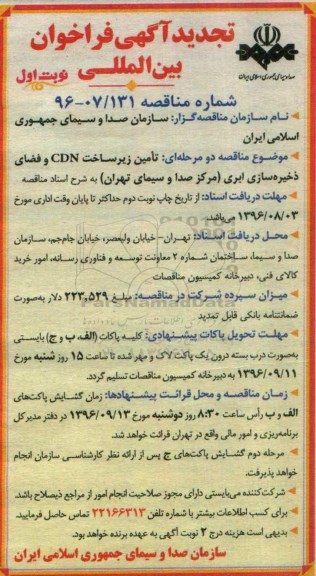 تجدید آگهی فراخوان
بین‌المللی
نوبت اول
صدا و سیمای جمهوری اسلامی ایران
شماره مناقصه ۹۶-۰۷/۱۳۱
نام سازمان مناقصه‌گزار: سازمان صدا و سیمای جمهوری
اسلامی ایران
موضوع مناقصه دو مرحله‌ای: تأمین زیرساخت CDN و فضای
ذخیره‌سازی ابری (مرکز صدا و سیمای تهران) به شرح اسناد مناقصه
مهلت دریافت اسناد: از تاریخ چاپ نوبت دوم حداکثر تا پایان وقت اداری مورخ
۱۳۹۶/۰۸/۰۳ می‌باشد.
محل دریافت اسناد: تهران- خیابان ولیعصر، خیابان جام‌جم، سازمان
صدا و سیما، ساختمان شماره ۲ معاونت توسعه و فناوری رسانه، امور خرید
کالای فنی، دبیرخانه کمیسیون مناقصات
میزان سپرده شرکت در مناقصه: مبلغ ۲۲۳,۵۲۹ دلار به‌صورت
ضمانتنامه بانکی قابل تمدید
مهلت تحویل پاکات پیشنهادی: کلیه پاکات (الف، ب و ج) بایستی
به‌صورت درب بسته درون یک پاکت لاک و مهر شده تا ساعت ۱۵ روز شنبه مورخ
۱۳۹۶/۰۹/۱۱ به دبیرخانه کمیسیون مناقصات تسلیم گردد.
زمان مناقصه و محل قرائت پیشنهادها: زمان گشایش پاکت‌های
الف و ب رأس ساعت ۸:۳۰ روز دوشنبه مورخ ۱۳۹۶/۰۹/۱۳ در دفتر مدیرکل
برنامه‌ریزی و امور مالی واقع در تهران قرائت خواهد شد.
مرحله دوم گشایش پاکت‌های ج پس از ارائه نظر کارشناسی سازمان انجام
خواهد پذیرفت.
شرکت‌کننده می‌بایستی دارای مجوز صلاحیت انجام امور از مراجع ذیصلاح باشد.
برای کسب اطلاعات بیشتر با شماره تلفن ۲۲۱۶۶۳۱۳ تماس حاصل فرمایید.
بدیهی است هزینه درج ۲ نوبت آگهی به عهده برنده خواهد بود.
سازمان صدا و سیمای جمهوری اسلامی ایران